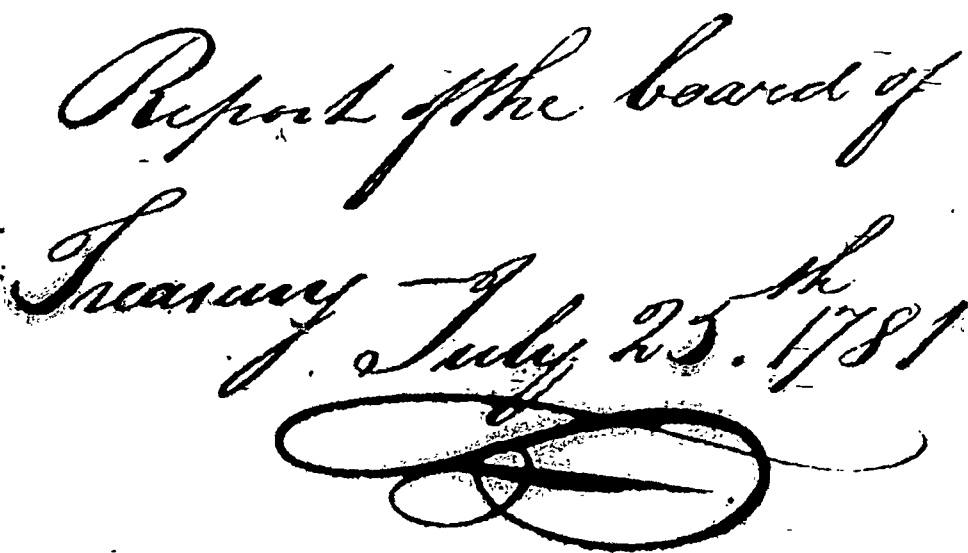 Report of the board of
Treasury — July 25.th 1781